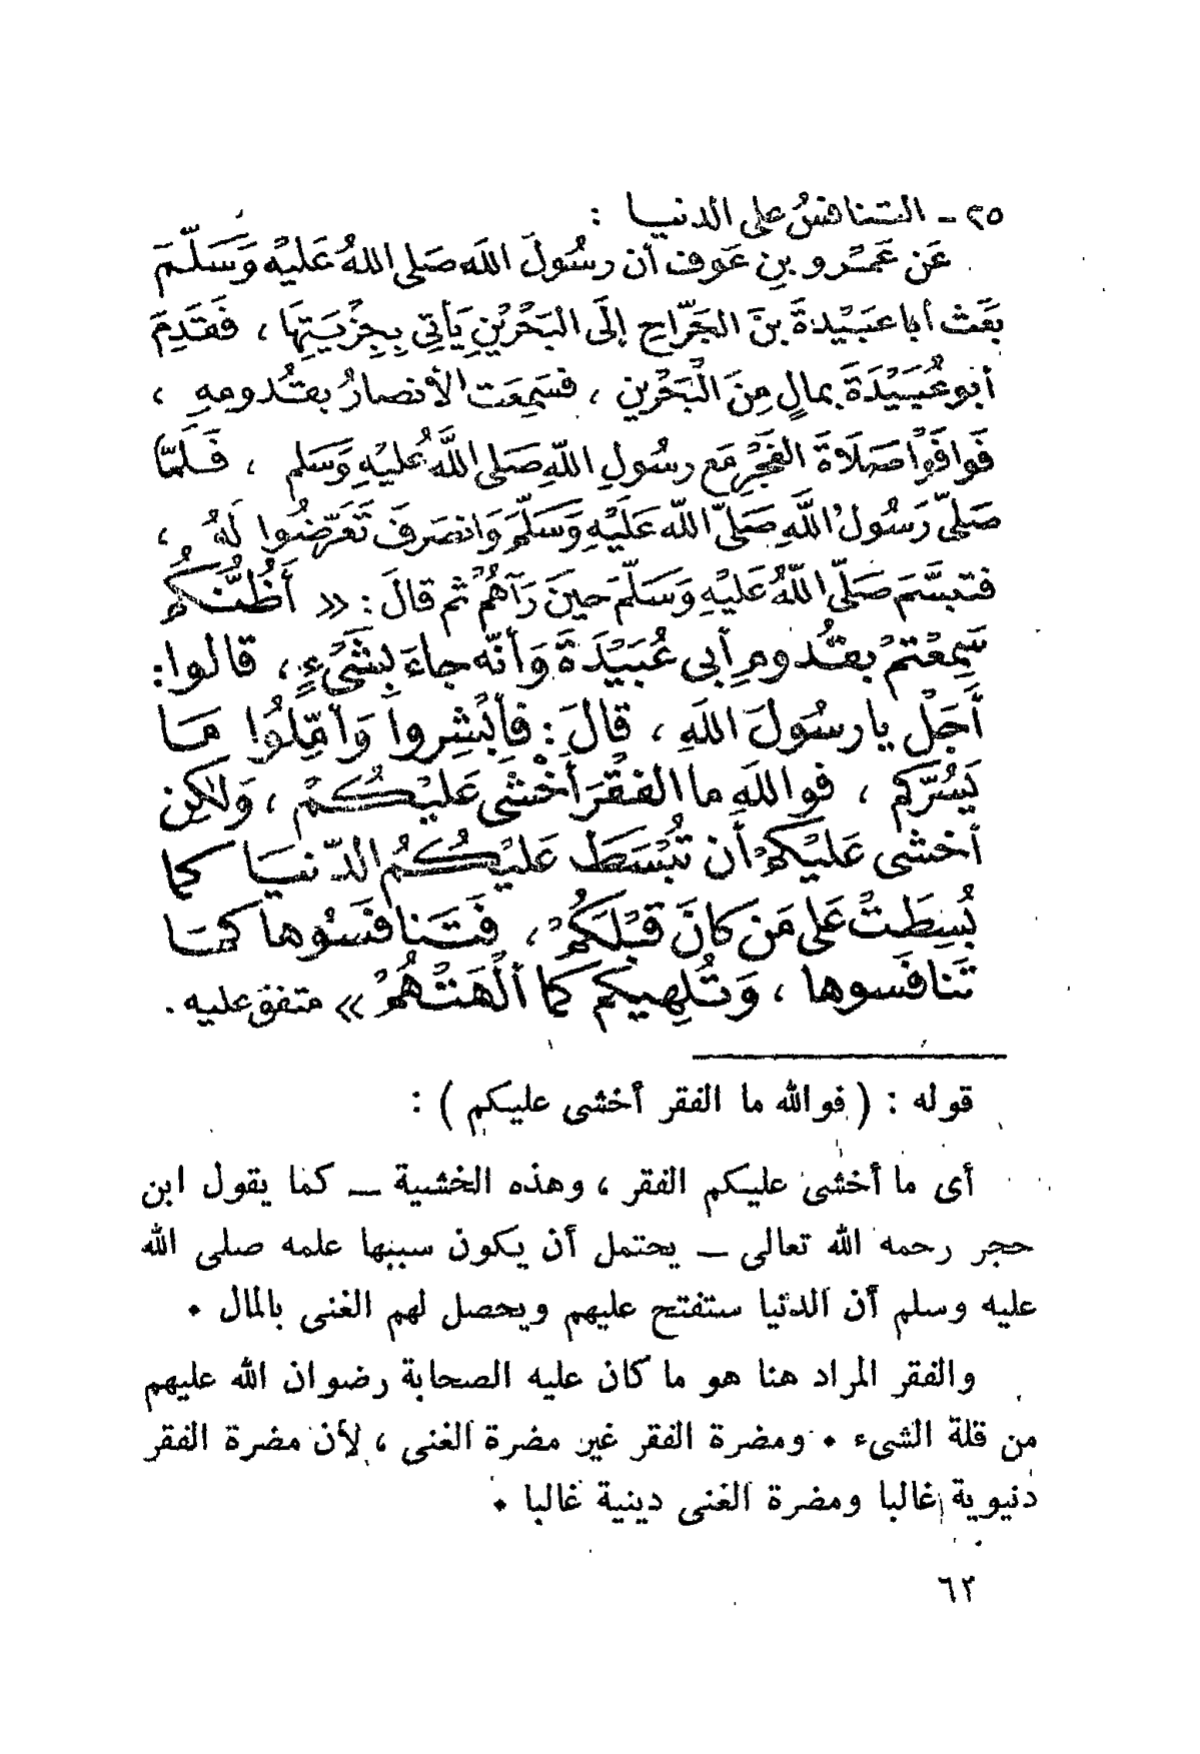 ٢٥ - التنافسُ على الدنيا :
عَن عَمْرو بنِ عَوف أن رسُولَ اللهَ صَلى اللهُ عَليْه وَسَلَّمَ
بَعَث أبا عبَيْدةَ بنَ الجَرّاح إلَى البَحْرَيْنِ يَأتِي بِجِزْيَتِهَا ، فَقَدِمَ
أبو عُبَيْدَةَ بمالٍ مِنَ الْبَحْرين ، فسَمِعَت الأنصارُ بقدُومهِ ،
فَوافَوْا صَلَاةَ الفَجْرِ مَع رسُولِ اللّهِ صَلى اللَّهُ عليْهِ وَسَلم ، فَلَمّا
صَلىّ رَسُولُ اللَّهِ صَلىّ اللّه عَلَيْهِ وَسَلّمَ وَانصَرَفَ تَعَرّضُوا لَهُ ،
فتبسَّمَ صَلّى اللّهُ عَليْهِ وَسَلّمَ حينَ رَآهُمْ ثم قالَ : « أَظُنُّكُم
سَمِعْتمْ بقدُومِ أبى عُبَيْدَةَ وَأنّه جاءَ بِشَىْءٍ ، قالوا :
أَجَلْ يا رسُولَ اللهَ ، قالَ : فأبْشِروا وَأمِّلُوا مَا
يَسُرّكم ، فواللهِ ما الفقْرَ أخْشى عَليْكُمْ ، وَلكِن
أخشى عَليْكمْ أن تُبْسَطَ عَليْكُمُ الدّنيَا كما
بُسِطَتْ عَلى مَن كانَ قبْلَكُمْ ، فَتَنافَسُوها كمَا
تَنافَسوها ، وَتُلهِيكم كما ألْهَتْهُمْ » متفق عليه .
قوله : ( فوالله ما الفقر أخشى عليكم ) :
أى ما أخشى عليكم الفقر ، وهذه الخشية ــ كما يقول ابن
حجر رحمه الله تعالى ــ يحتمل أن يكون سببها علمه صلى الله
عليه وسلم أن الدنيا ستفتح عليهم ويحصل لهم الغنى بالمال .
والفقر المراد هنا هو ما كان عليه الصحابة رضوان الله عليهم
من قلة الشىء . ومضرة الفقر غير مضرة الغنى ، لأن مضرة الفقر
دنيوية غالبا ومضرة الغنى دينية غالبا .
٦٢